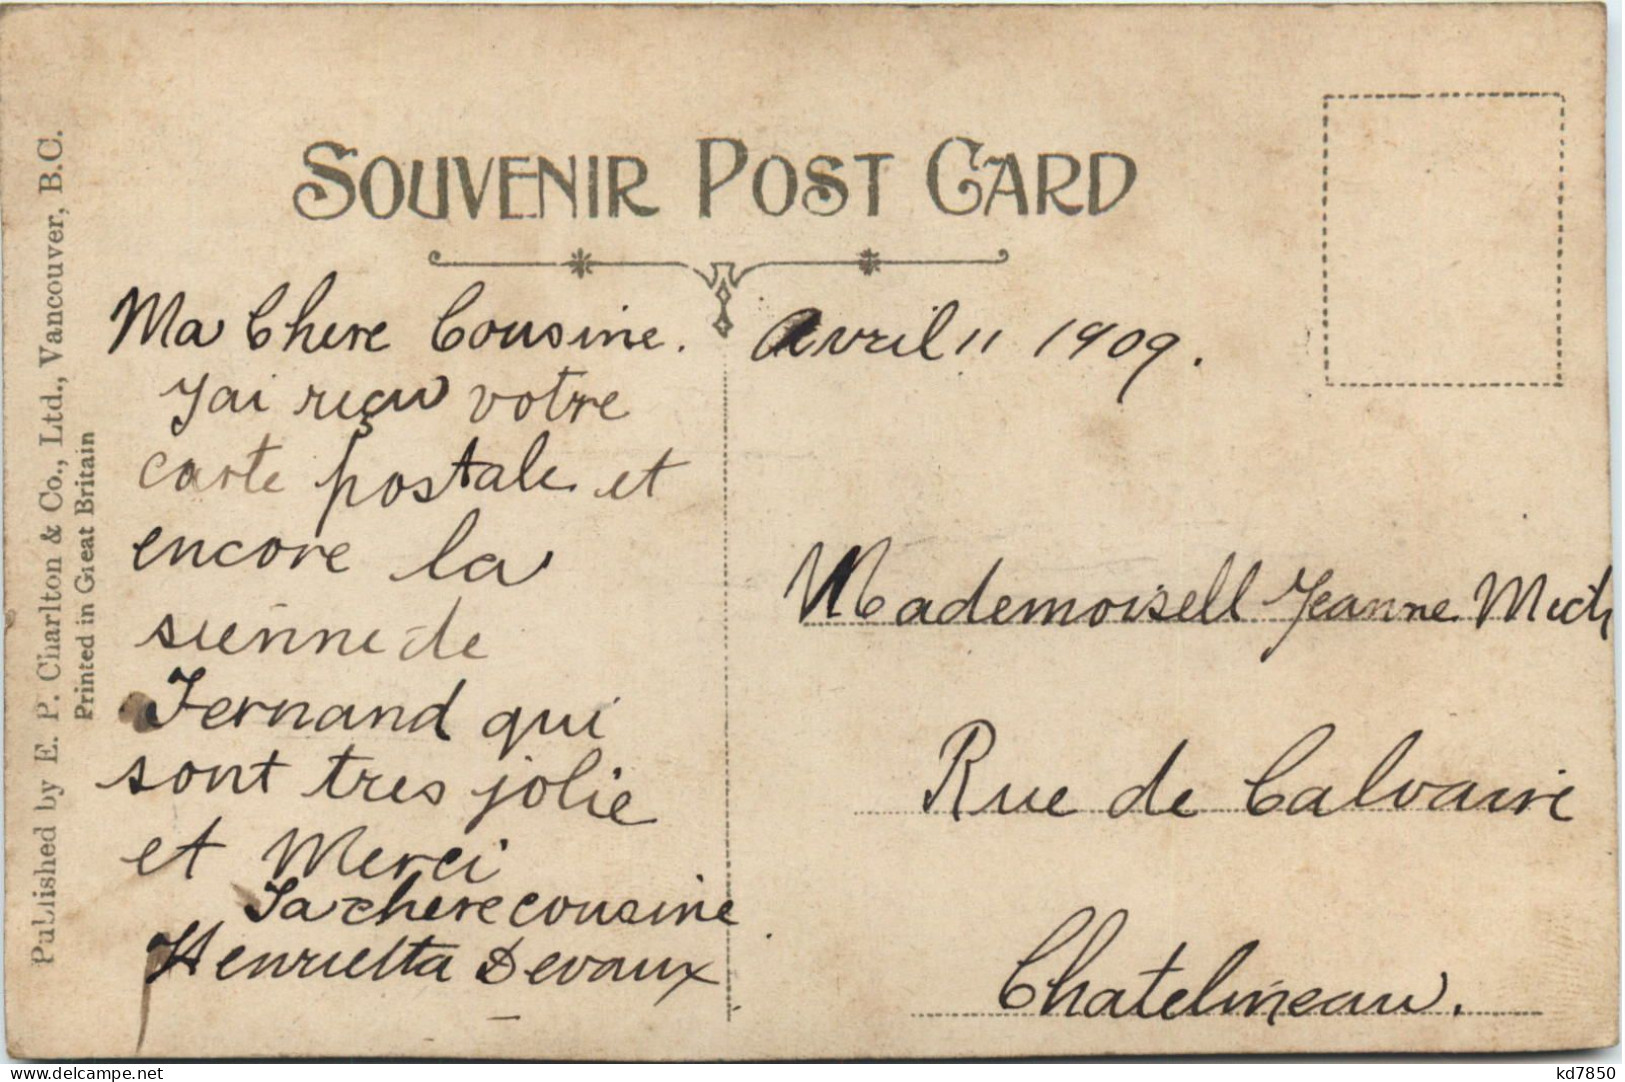 SOUVENIR POST CARD
Ma Chere Cousine.
Avril 11 1909.
J'ai reçu votre
carte postale et
encore la
sienne de
Fernand qui
sont tres jolie
et Merci
Ta chere cousine
Henrietta Devaux
Mademoisell Jeanne Mich
Rue de Calvaire
Chatelineau.
Published by E. P. Charlton & Co., Ltd., Vancouver, B.C.
Printed in Great Britain
delcampe.net
kd7850